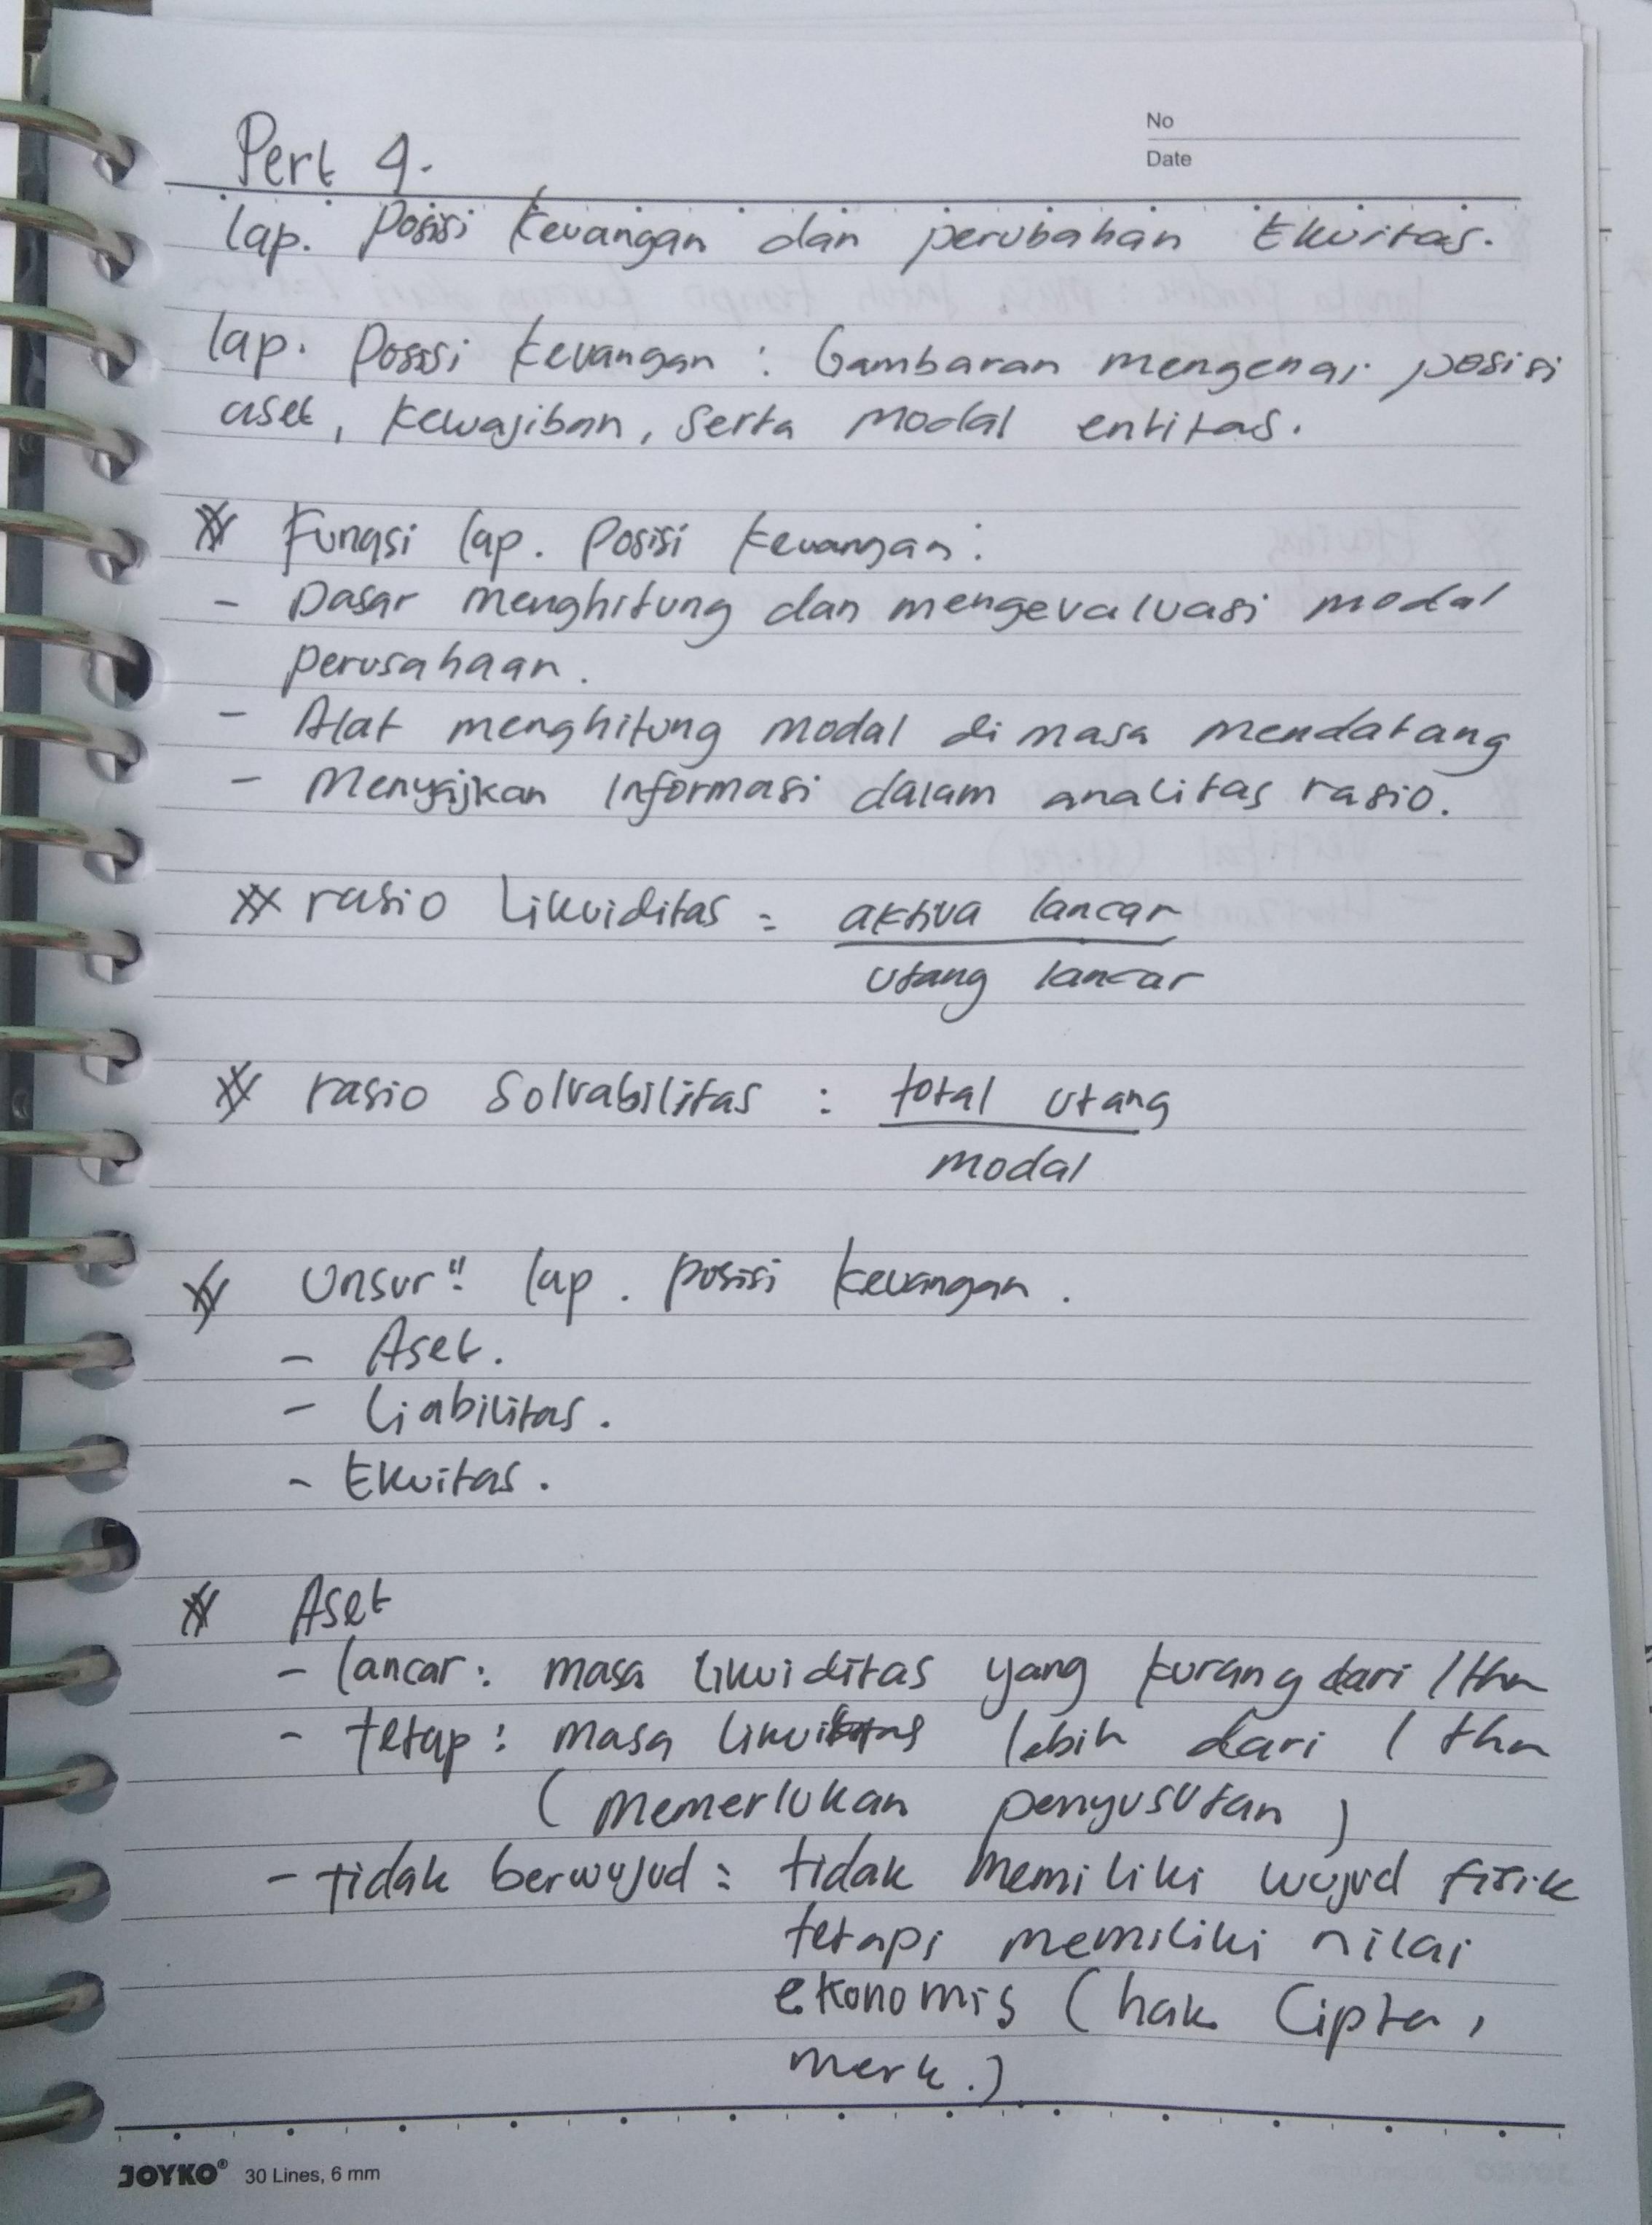 No
Date
Pert 4.
lap. Posisi Keuangan dan perubahan Ekuitas.
lap. Posisi Keuangan : Gambaran mengenai posisi
aset, Kewajiban, serta modal entitas.
# Fungsi lap. Posisi Keuangan :
- Dasar menghitung dan mengevaluasi modal
perusahaan.
- Alat menghitung modal di masa mendatang
- Menyajikan Informasi dalam analitas rasio.
# rasio Likuiditas = aktiva lancar
utang lancar
# rasio Solvabilitas : total utang
modal
# Unsur" lap. posisi keuangan.
- Aset.
- Liabilitas.
- Ekuitas.
# Aset
- lancar : masa likuiditas yang kurang dari 1 thn
- tetap : masa likuiditas lebih dari 1 thn
( memerlukan penyusutan )
- tidak berwujud = tidak memiliki wujud fisik
tetapi memiliki nilai
ekonomis ( hak Cipta,
merk.)
JOYKO® 30 Lines, 6 mm